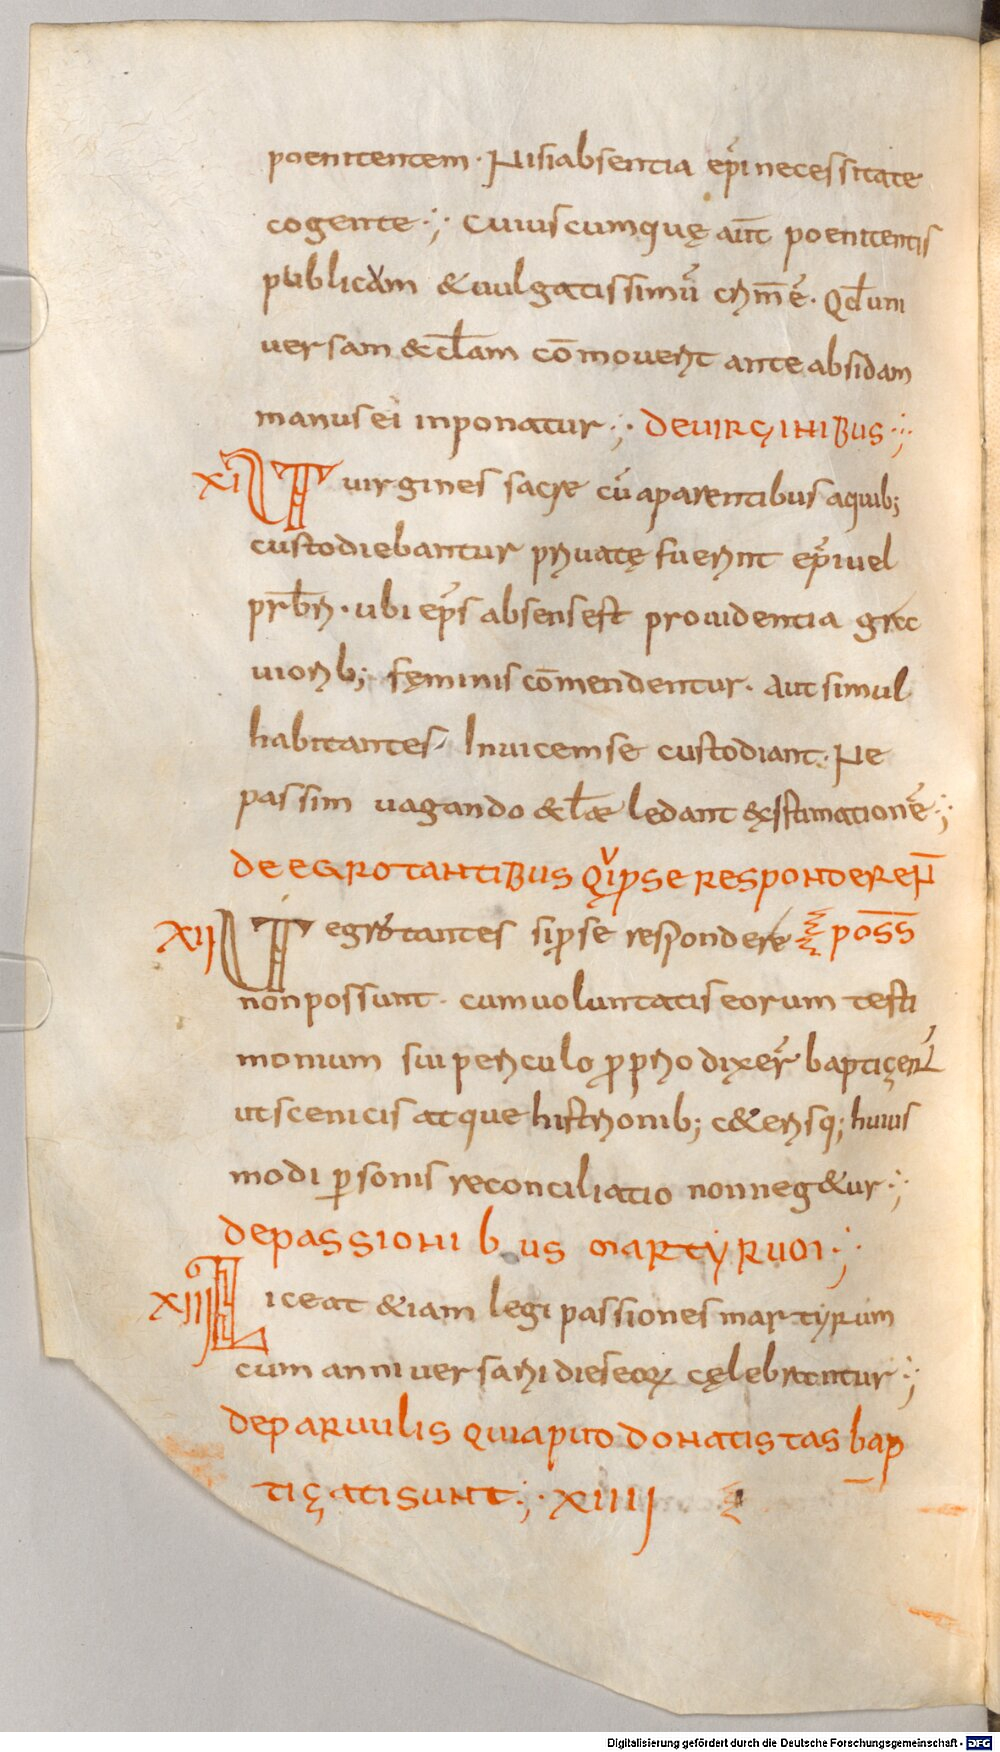 poenitentem · Nisi absentia ep̄i necessitate
cogente ·; Cuiuscumquę aūt poenitentis
publicam & uulgatissimū crim̄ ē · Qd̄ uni
uersam & c̄lam cōmouerit ante absidam
manus ei inponatur ·; DE UIRGINIBUS ·;
XI UT uirgines sacrę cū a parentibus a quib;
custodiebantur priuatę fuerint ep̄i uel
prb̄ri · ubi ep̄s absens est prouidentia gra
uiorib; fęminis cōmendentur · Aut simul
habitantes Inuicem se custodiant · Ne
passim uagando & l̄æ ledant ęstimationē ·;
DE EGROTANTIBUS Qui ꝑ se RESPONDERE N̄
XII UT egrotantes si ꝑ se respondere POSS̄
non possunt · cum uoluntatis eorum testi
monium sui periculo ꝓprio dixer̄ baptizent̄
ut scenicis atque histrionib; c&erisq; huius
modi ꝑsonis reconciliatio non neg&ur ·;
DE PASSIONIBUS MARTYRUM ·;
XIII Liceat &iam legi passiones martyrum
cum anniuersarii dies eoꝝ cęlebrantur ·;
DE PARUULIS QUI APUD DONATISTAS BAP
TIZATI SUNT ·; XIIII
Digitalisierung gefördert durch die Deutsche Forschungsgemeinschaft - DFG